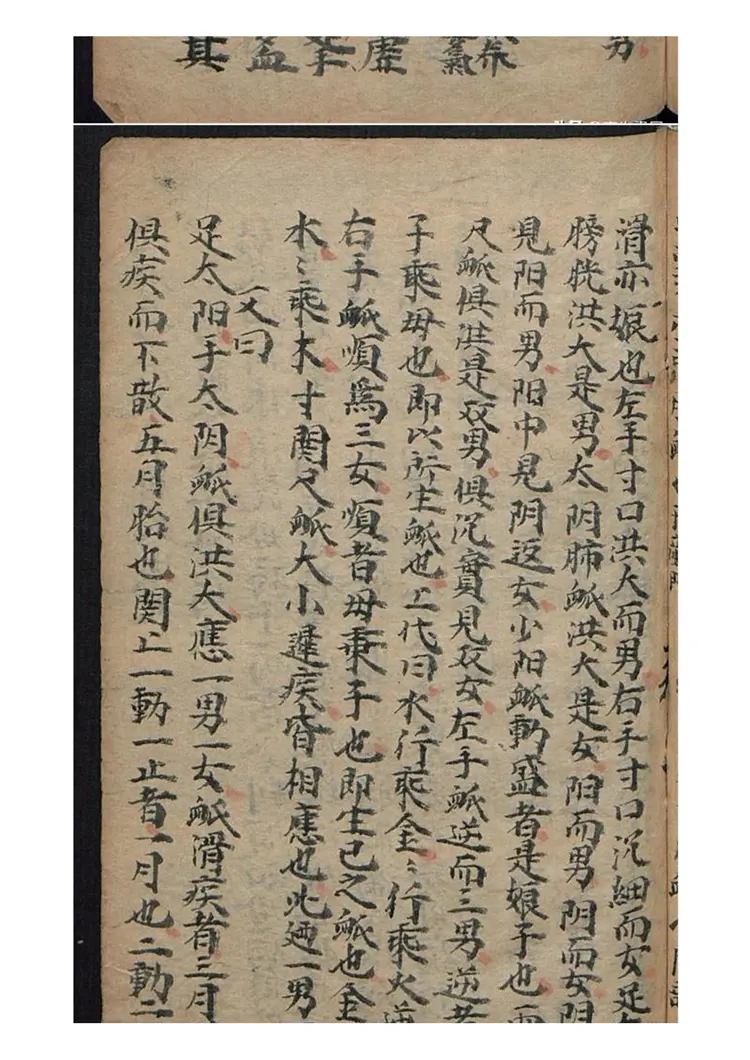 男
養
氣
虛
孕
盆
其
滑亦娘也左手寸口洪大而男右手寸口沉細而女足
膀胱洪大是男太阴肺衇洪大是女阳而男阴而女阴
見阳而男阳中見阴返女少阳衇動盛者是娘子也
尺衇俱洪是双男俱沉實見双女左手衇逆而三男逆者
子乘毋也即以所生衇也上代曰水行乘金〻行乘火逆
右手衇順爲三女順者毋乘子也即生已之衇也金
水〻乘木寸関尺衇大小遲疾皆相應也此廼一男
又曰
足太阳手太阴衇俱洪大應一男一女衇滑疾者三月
俱疾而不散五月胎也関上一動一止者一月也二動二